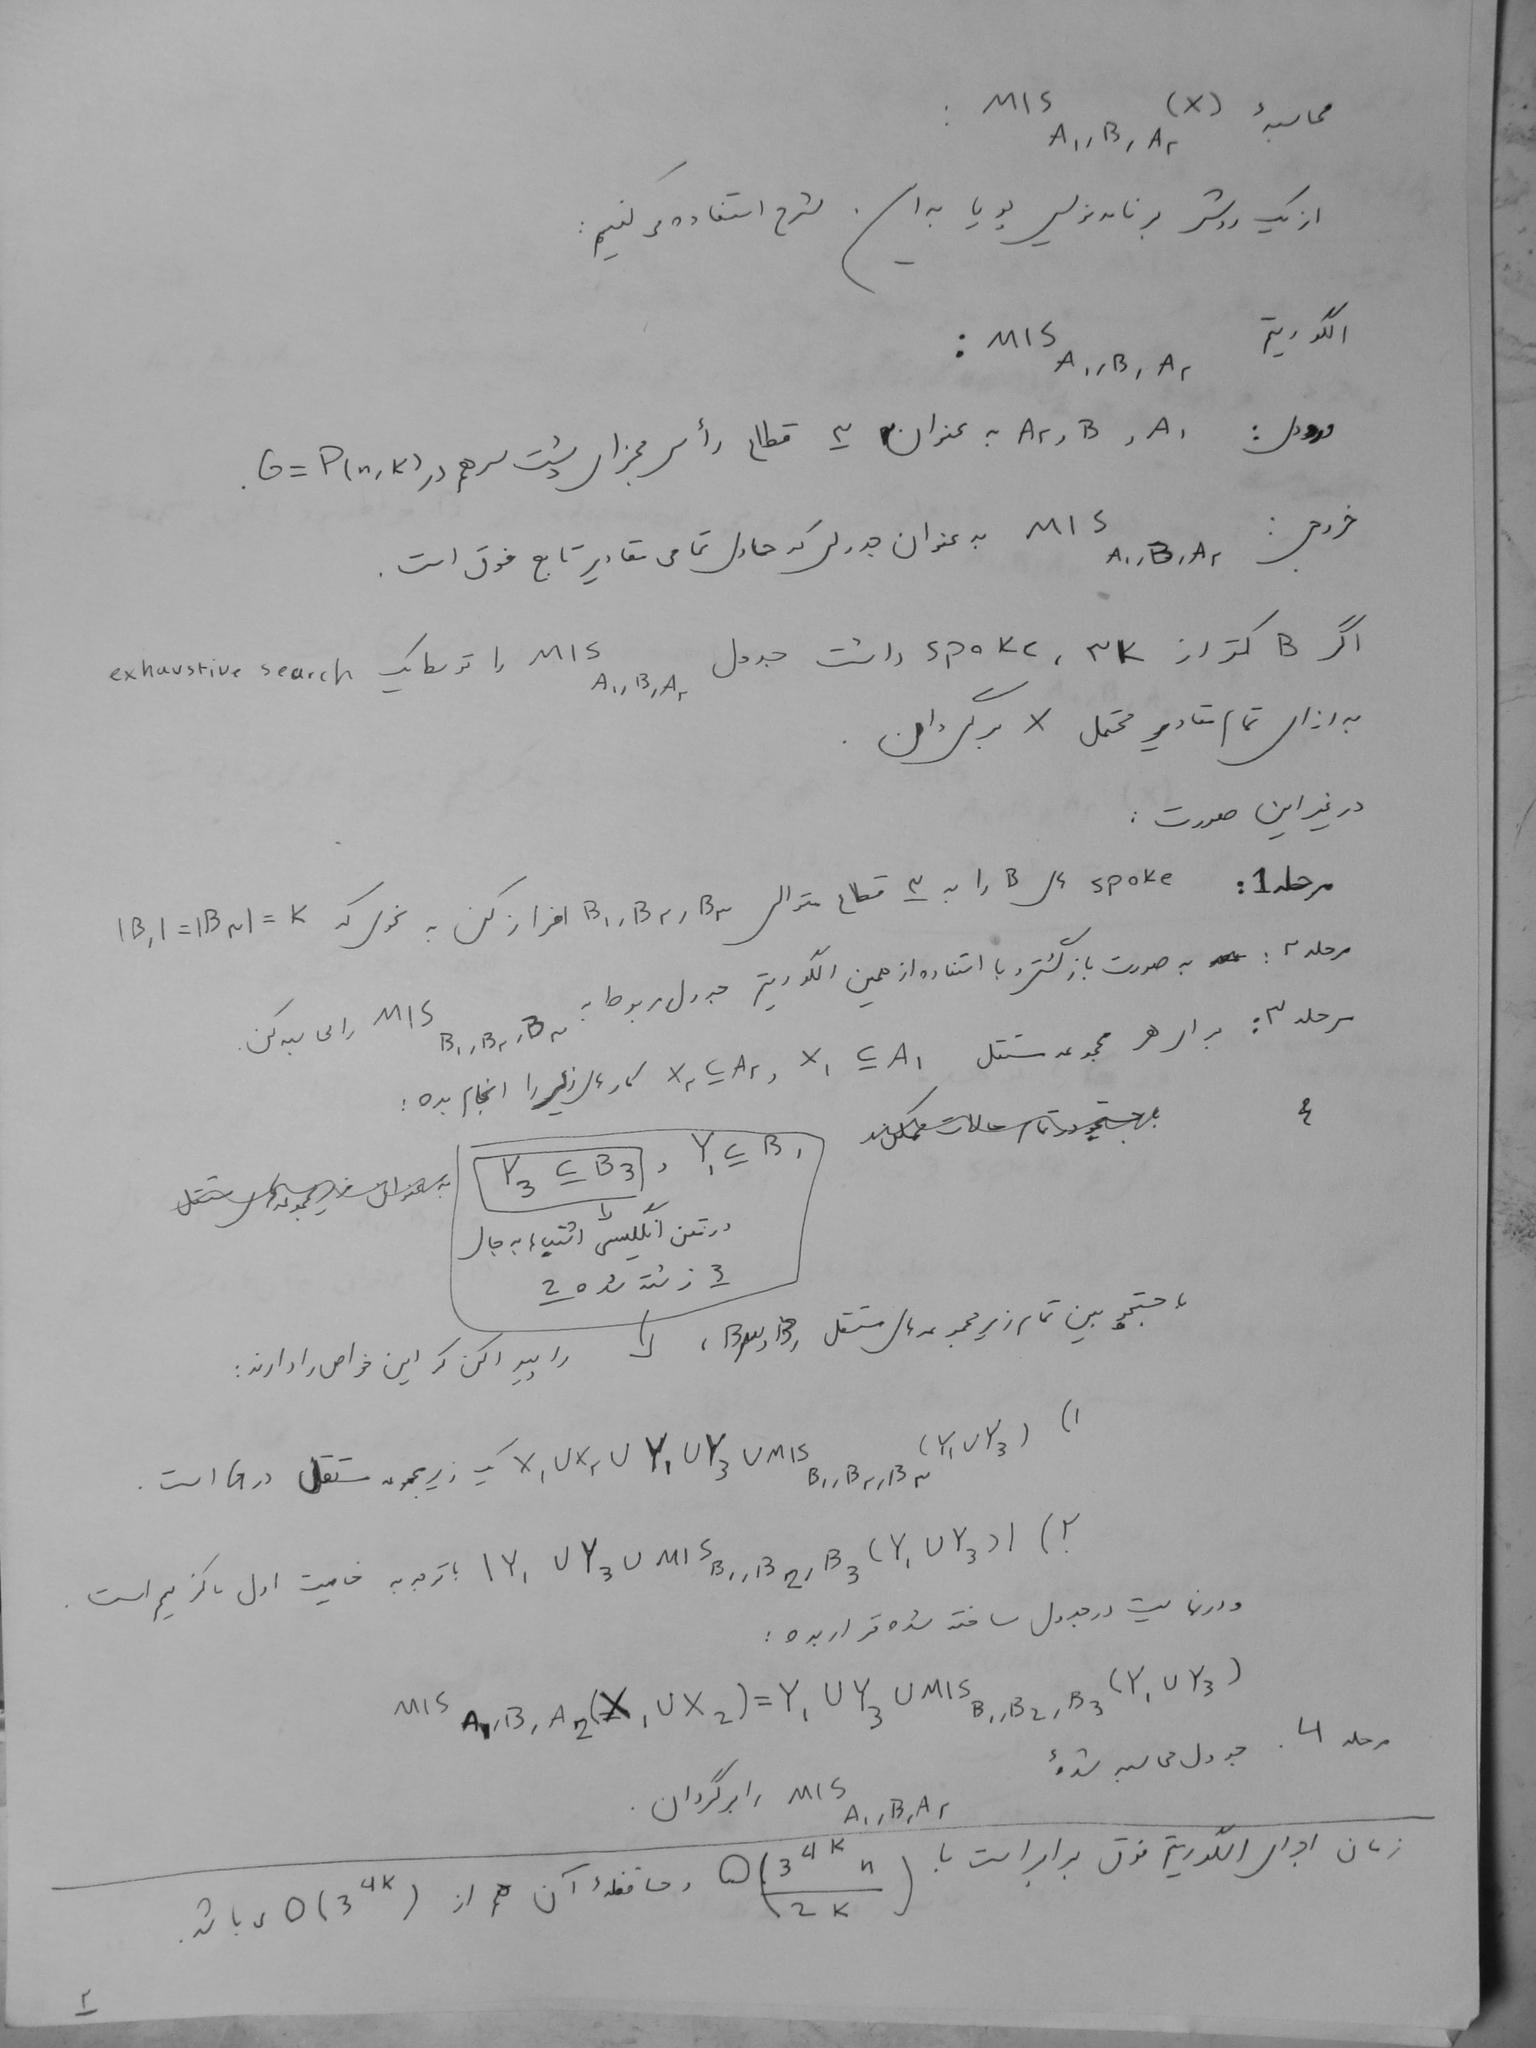 محاسبهٔ MIS A۱,B,A۲ (X) :
از یک روش برنامه نویسی پویا به این شرح استفاده می کنیم:
الگوریتم MIS A۱,B,A۲ :
ورودی: A۱ , B , A۲ به عنوان ۳ قطاع رأس مجزای پشت سر هم در G = P(n,k).
خروجی: MIS A۱,B,A۲ به عنوان جدولی که حاوی تمامی مقادیر تابع فوق است.
اگر B کمتر از ۳k ، spoke داشت جدول MIS A۱,B,A۲ را توسط یک exhaustive search
به ازای تمام مقادیر محتمل X برگردان.
در غیر این صورت:
مرحله 1: spoke های B را به ۳ قطاع متوالی B۱,B۲,B۳ افراز کن به نحوی که |B۱| = |B۳| = k
مرحله ۲: به صورت بازگشتی و با استفاده از همین الگوریتم جدول مربوط به MIS B۱,B۲,B۳ را محاسبه کن.
مرحله ۳: برای هر مجموعه مستقل X۱ ⊆ A۱ و X۲ ⊆ A۲ کارهای زیر را انجام بده:
Y₁ ⊆ B₁ , Y₃ ⊆ B3
در متن انگلیسی اشتباه به جای
3 نوشته شده 2
با جستجو بین تمام زیرمجموعه های مستقل B۱ و B۳ ، را پیدا کن که این خواص را دارند:
۱) X۱ ∪ X۲ ∪ Y₁ ∪ Y₃ ∪ MIS B۱,B۲,B۳ (Y₁ ∪ Y₃) یک زیرمجموعه مستقل در G است.
۲) |Y₁ ∪ Y₃ ∪ MIS B₁,B₂,B₃ (Y₁ ∪ Y₃)| با توجه به خاصیت اول ماکزیمم است.
و در نهایت در جدول ساخته شده قرار بده:
MIS A۱,B,A₂ (X₁ ∪ X₂) = Y₁ ∪ Y₃ ∪ MIS B₁,B₂,B₃ (Y₁ ∪ Y₃)
مرحله 4. جدول محاسبه شدهٔ MIS A۱,B,A۲ را برگردان.
زمان اجرای الگوریتم فوق برابر است با O(3^{4k} n / 2k) و حافظهٔ آن هم از O(3^{4k}) می باشد.
۲